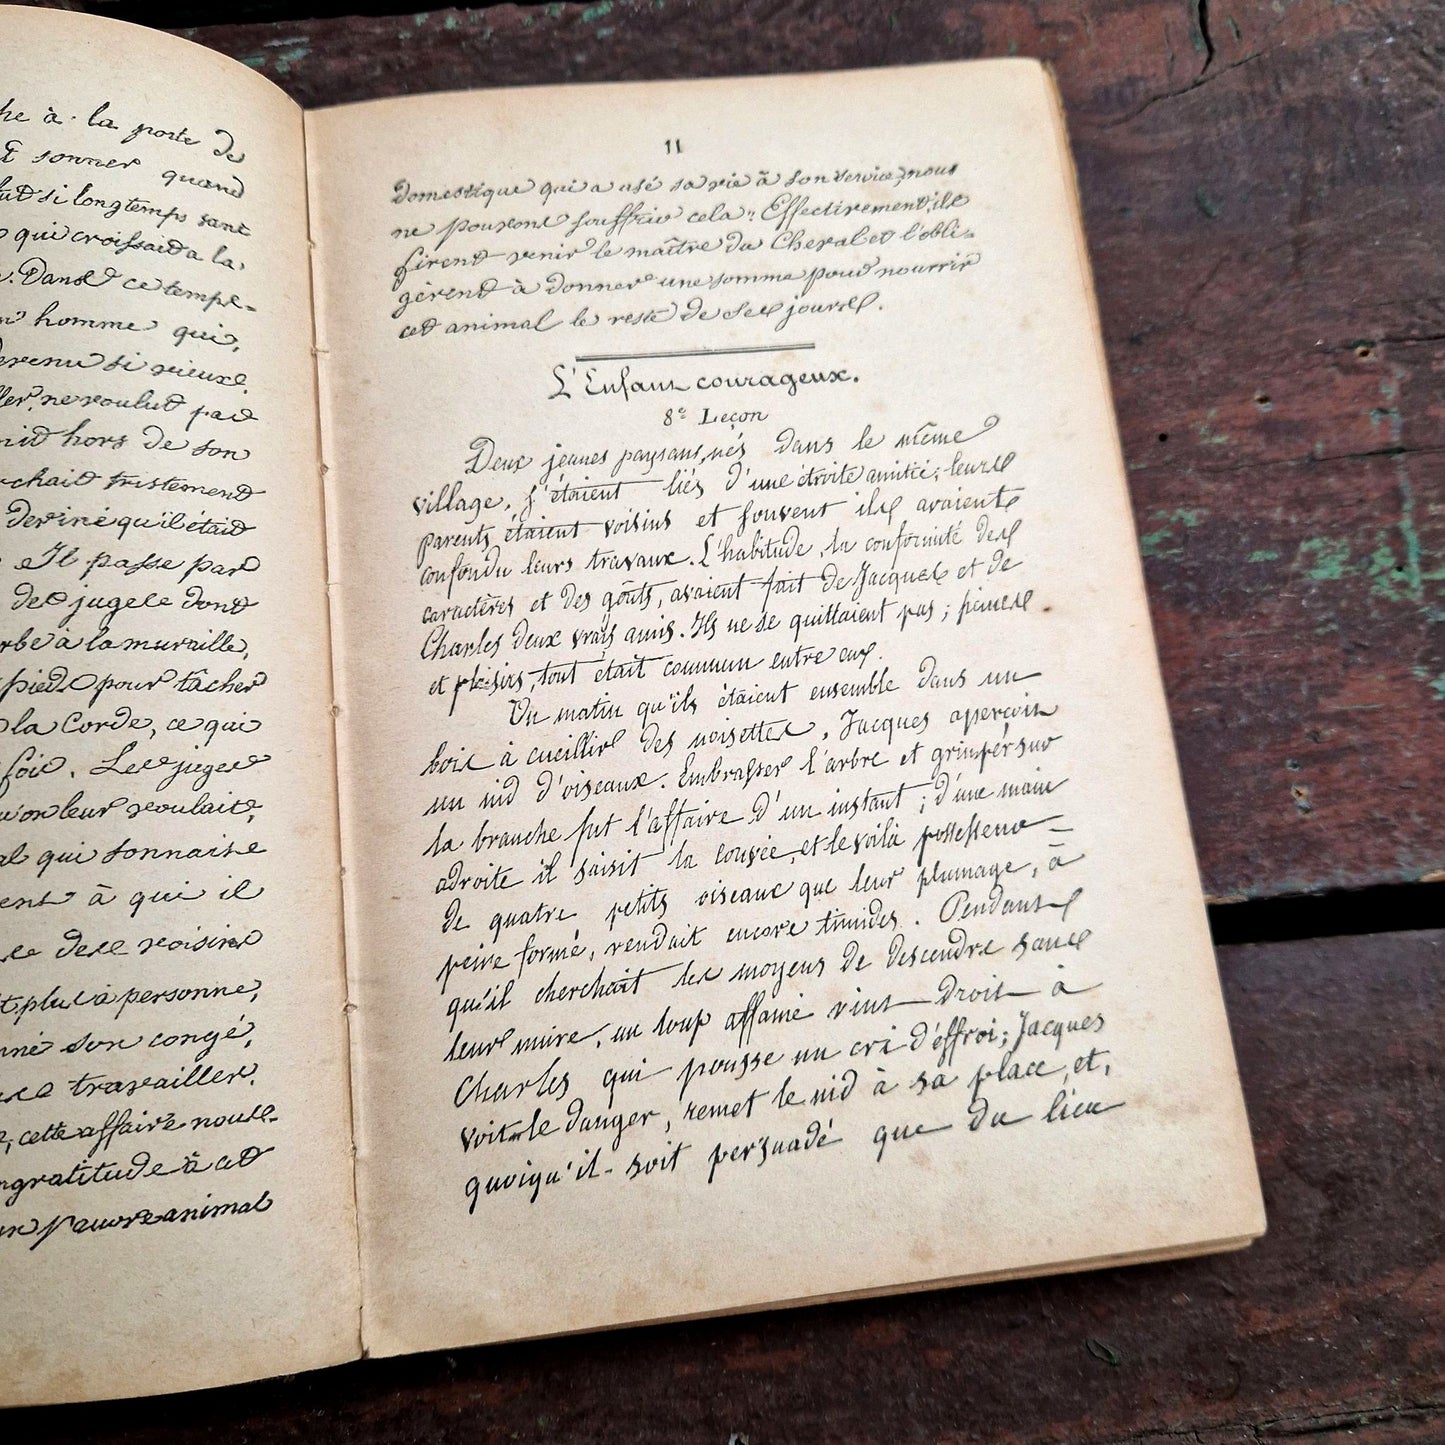 he à la porte de
t sonner quand
fut si longtemps sans
qui croissait à la
. Dans ce temps-
n homme qui,
devenu si vieux
ller, ne voulut pas
nit hors de son
rchait tristement
deviné qu'il était
Il passe par
des juges dont
rbe à la muraille,
pieds pour tâcher
la Corde, ce qui
fois. Les juges
u'on leur voulait,
al qui sonnait
ent à qui il
des voisins
t plus à personne,
nné son congé,
travailler.
, cette affaire nous
ngratitude à cet
un pauvre animal
11
domestique qui a usé sa vie à son service, nous
ne pouvons souffrir cela". Effectivement, ils
firent venir le maître du Cheval et l'obli-
gèrent à donner une somme pour nourrir
cet animal le reste de ses jours.
L'Enfant courageux.
8e Leçon
Deux jeunes paysans, nés dans le même
village, s'étaient liés d'une étroite amitié; leurs
parents étaient voisins et souvent ils avaient
confondu leurs travaux. L'habitude, la conformité des
caractères et des goûts, avaient fait de Jacques et de
Charles deux vrais amis. Ils ne se quittaient pas; peines
et plaisirs, tout était commun entre eux.
Un matin qu'ils étaient ensemble dans un
bois à cueillir des noisettes, Jacques aperçoit
un nid d'oiseaux. Embrasser l'arbre et grimper sur
la branche fut l'affaire d'un instant; d'une main
adroite il saisit la couvée, et le voilà possesseur
de quatre petits oiseaux que leur plumage, à
peine formé, rendait encore timides. Pendant
qu'il cherchait les moyens de descendre sans
leur nuire, un loup affamé vint droit à
Charles qui pousse un cri d'effroi; Jacques
voit le danger, remet le nid à sa place, et,
quoiqu'il soit persuadé que du lieu